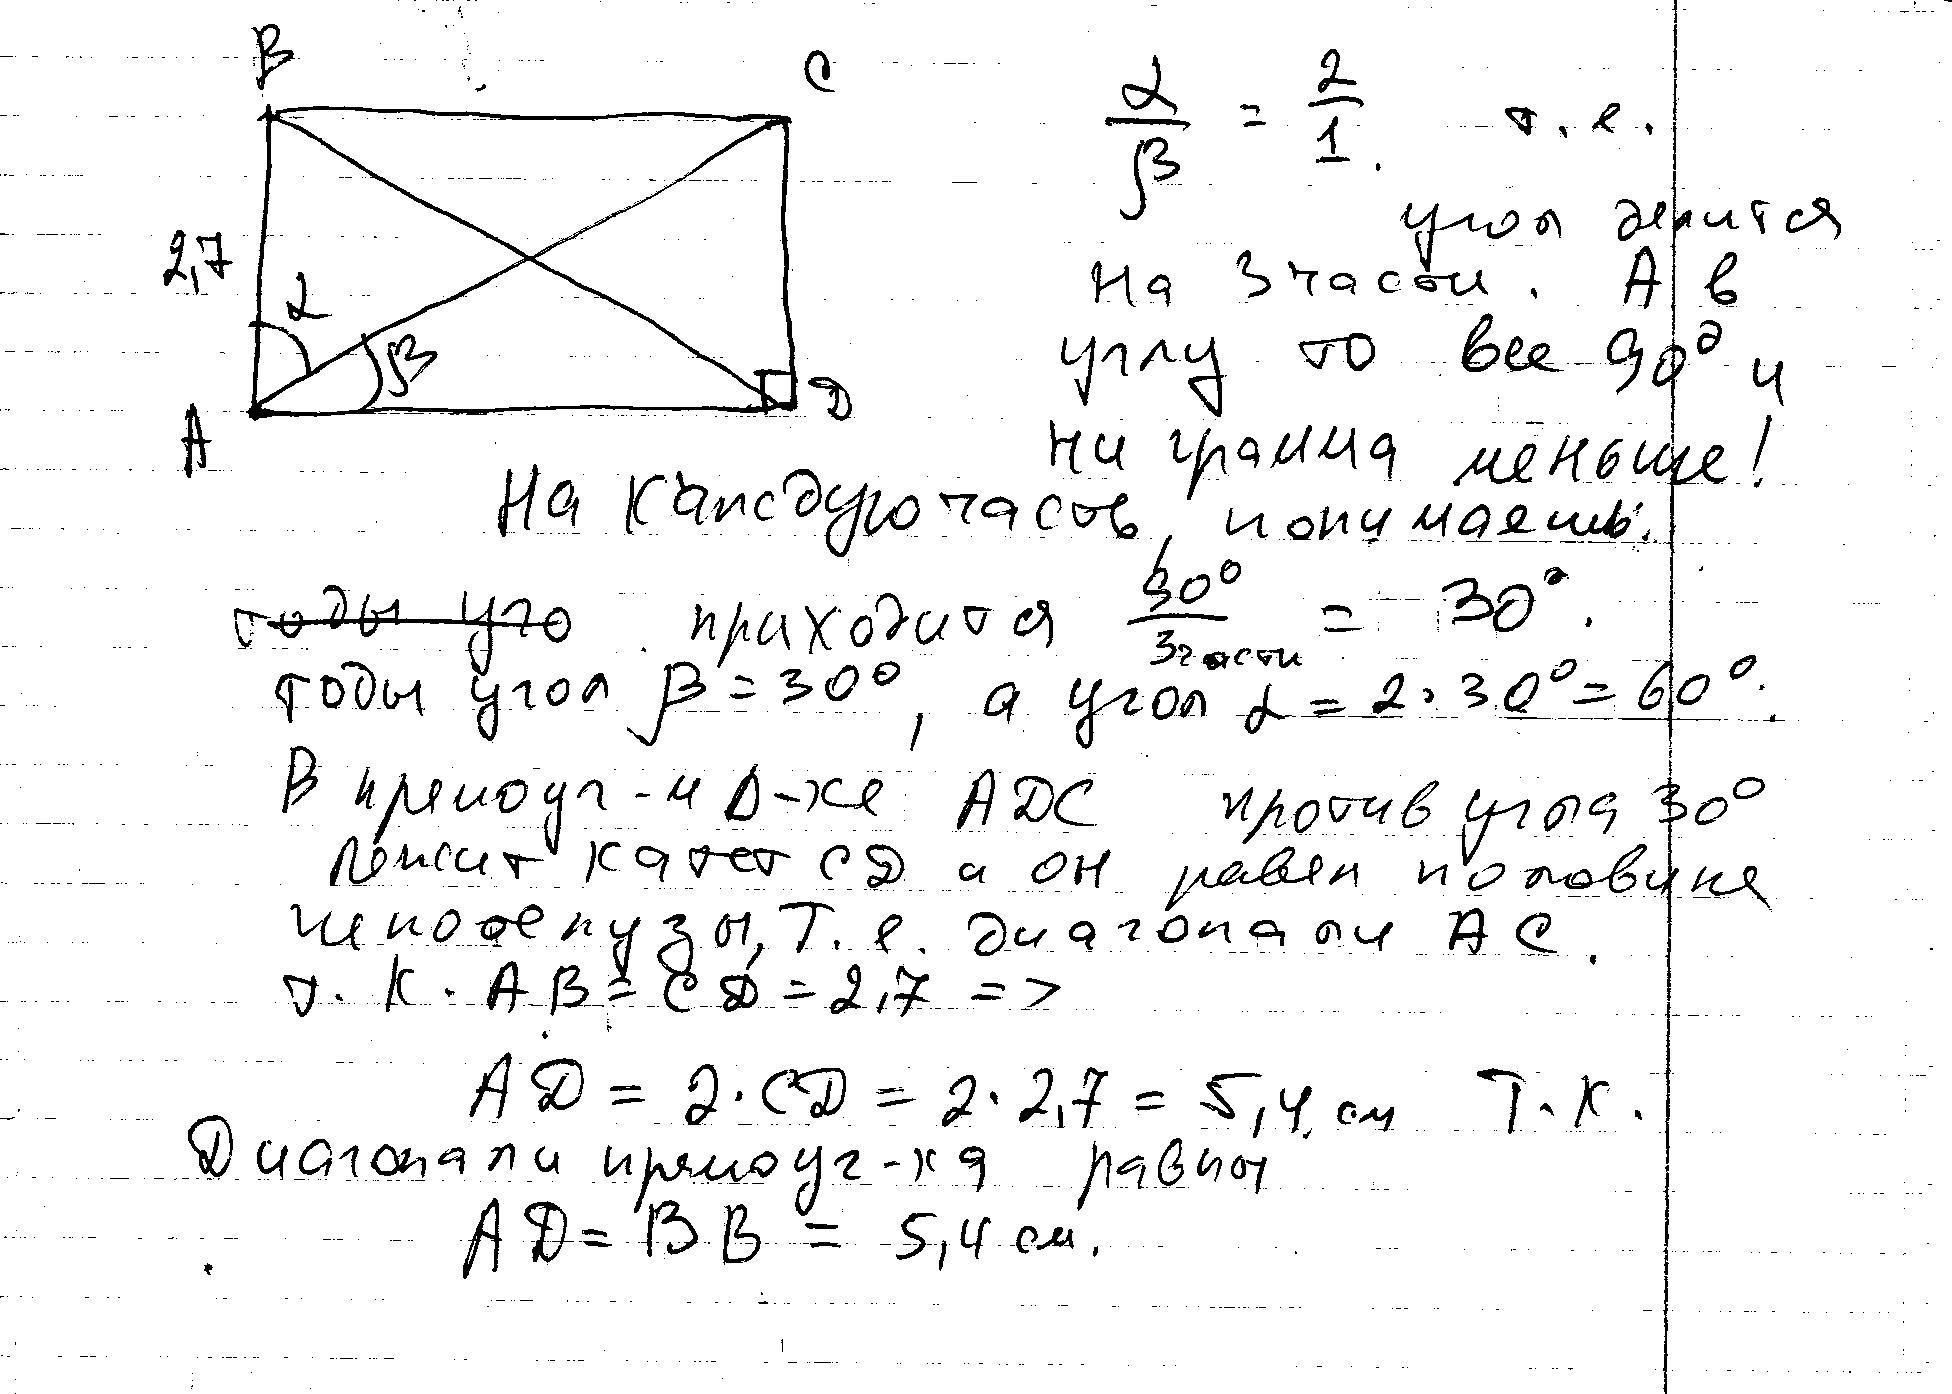 B
C
2,7
α
β
A
D
α/β = 2/1. т. е.
угол делится
на 3 части. А в
углу то все 90° и
ни грамма меньше!
На каждую часть, понимаешь.
тоды уго приходится 90°/3 части = 30°.
тоды угол β = 30°, а угол α = 2·30° = 60°.
В прямоуг-м Δ-ке ADC против угла 30°
лежит катет CD и он равен половине
гипотенузы, т. е. диагонали AC.
т. к. AB = CD = 2,7 =>
AD = 2·CD = 2·2,7 = 5,4 см Т. к.
Диагонали прямоуг-ка равны
AD = BB = 5,4 см.